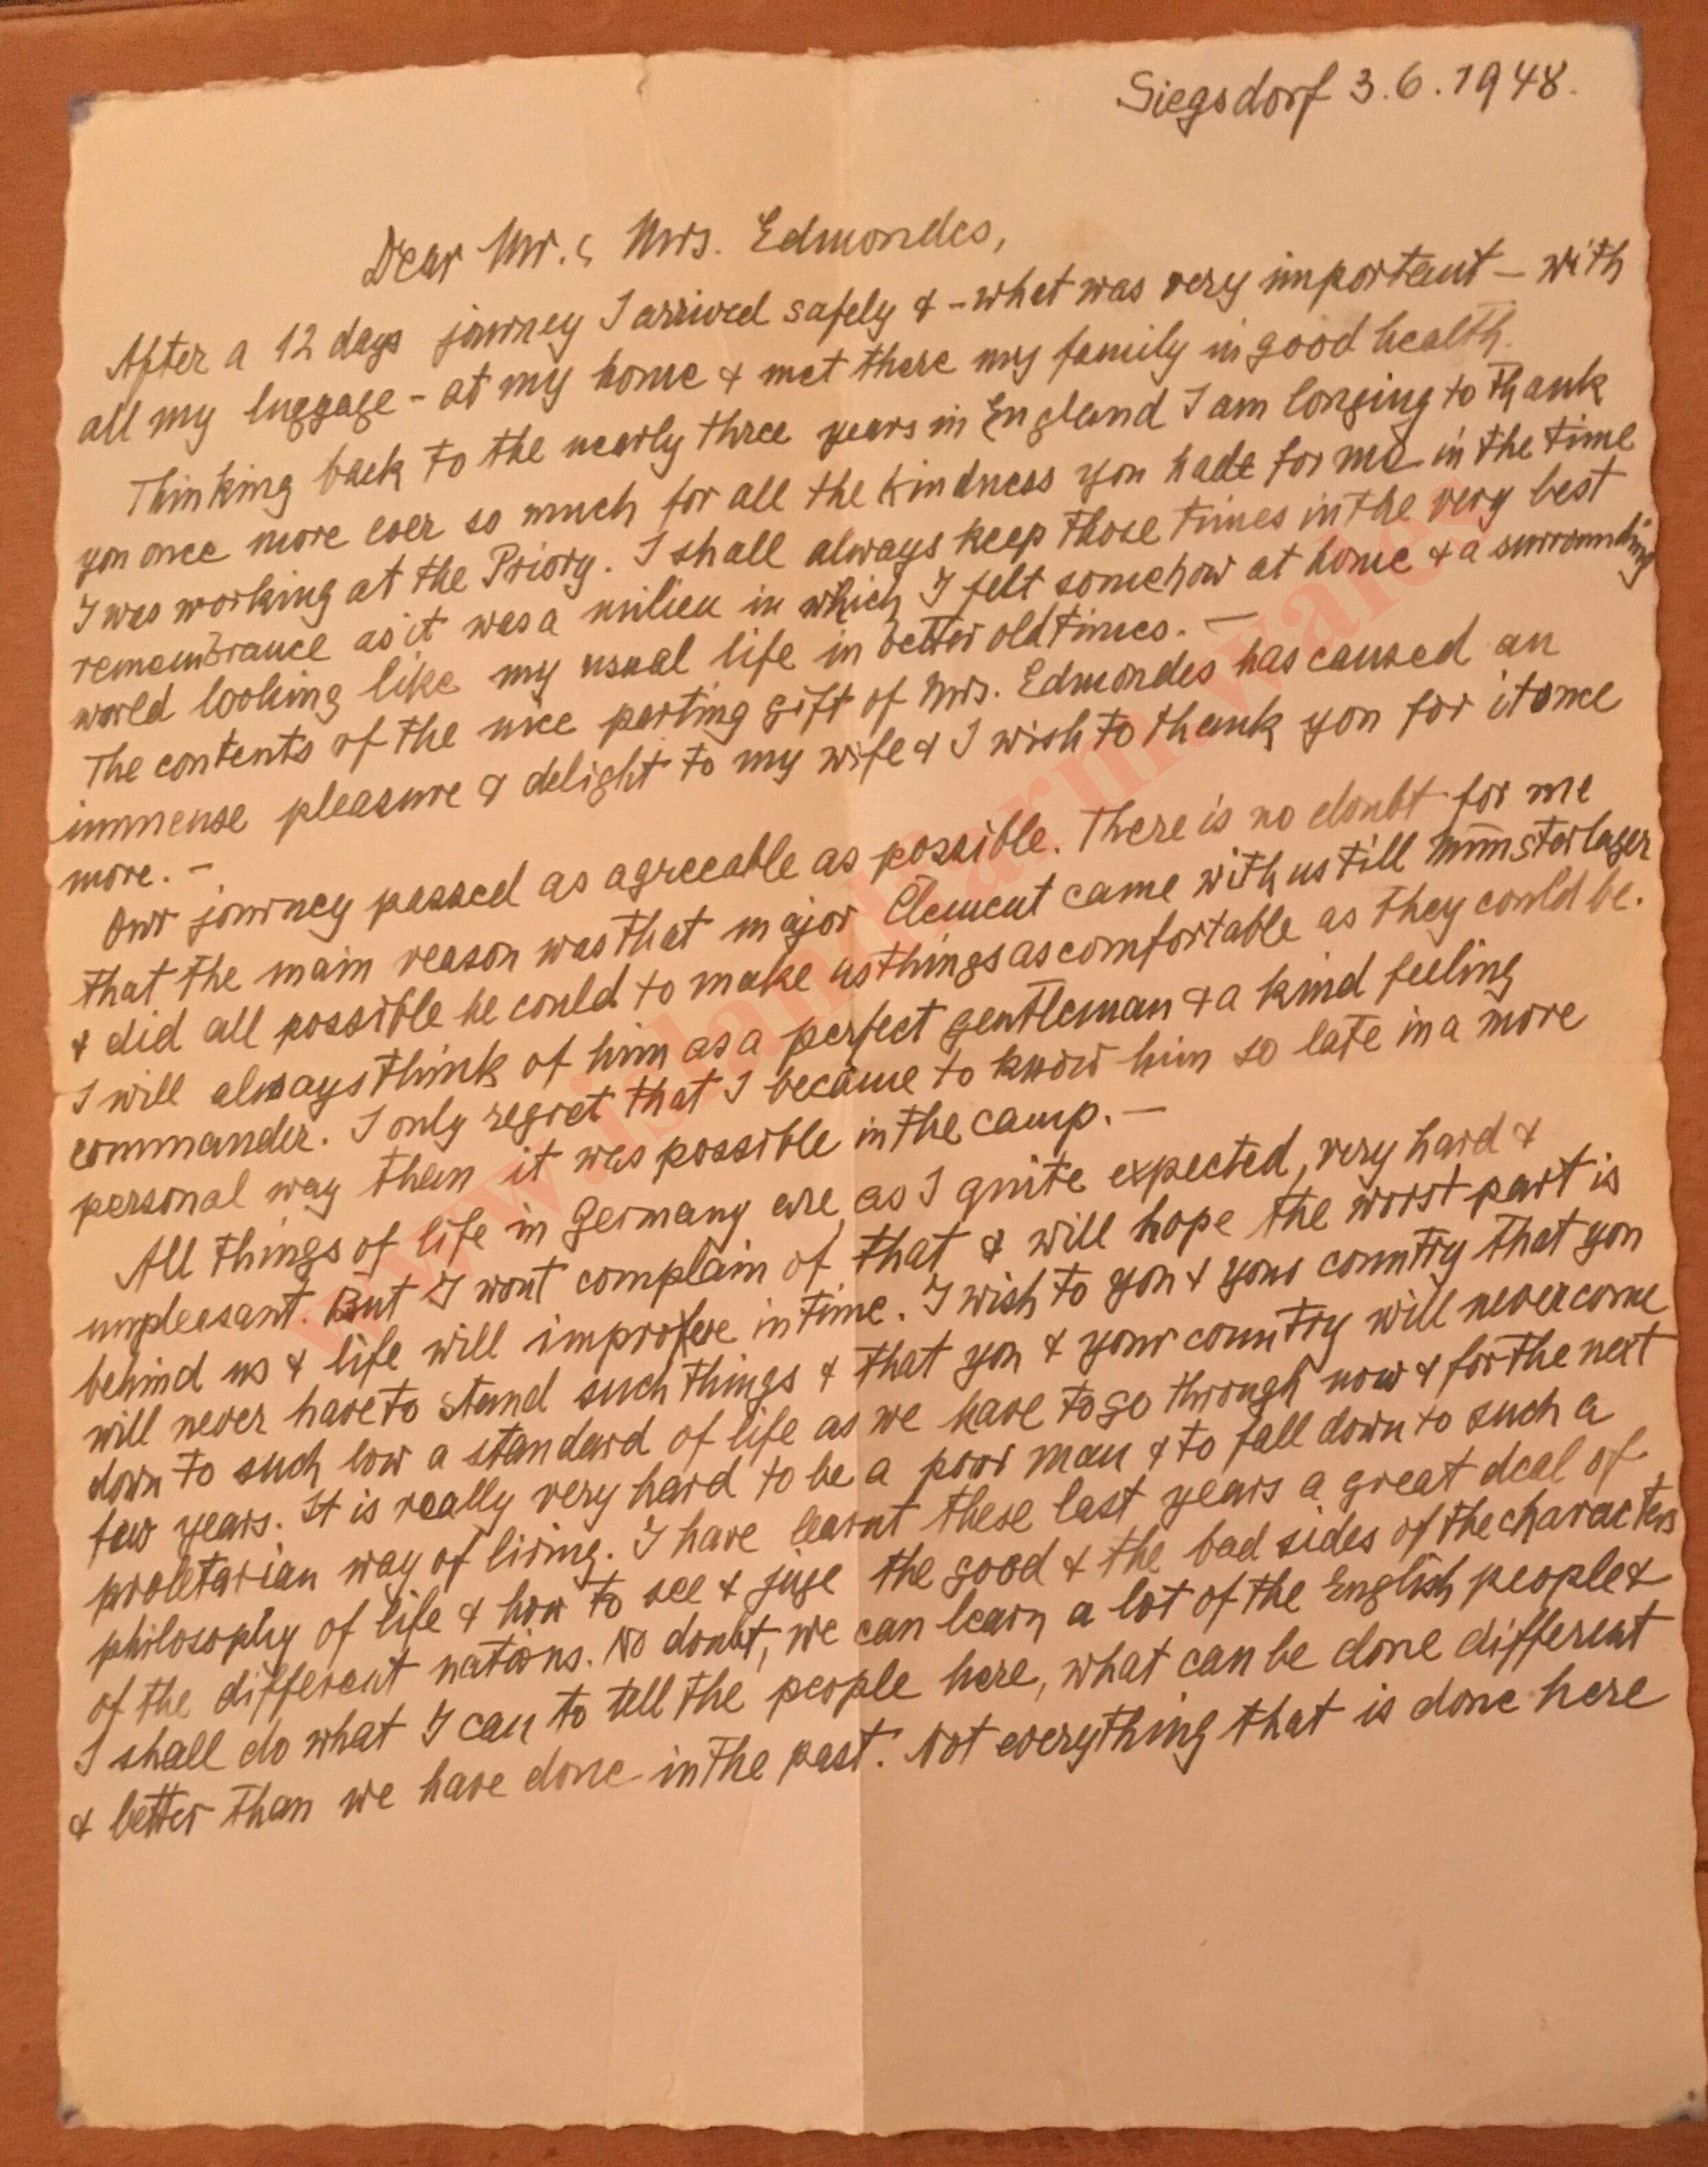 Siegsdorf 3.6.1948.
Dear Mr. & Mrs. Edmondes,
After a 12 days journey I arrived safely & - what was very important - with
all my luggage - at my home & met there my family in good health.
Thinking back to the nearly three years in England I am longing to thank
you once more ever so much for all the kindness you hade for me in the time
I was working at the Priory. I shall always keep those times in the very best
remembrance as it was a milieu in which I felt somehow at home & a surrounding
world looking like my usual life in better old times. -
The contents of the nice parting gift of Mrs. Edmondes has caused an
immense pleasure & delight to my wife & I wish to thank you for it once
more. -
Our journey passed as agreeable as possible. There is no doubt for me
that the main reason was that major Clement came with us till Munsterlager
& did all possible he could to make us things as comfortable as they could be.
I will always think of him as a perfect gentleman & a kind feeling
commander. I only regret that I became to know him so late in a more
personal way than it was possible in the camp. -
All things of life in Germany are, as I quite expected, very hard &
unpleasant. But I wont complain of that & will hope the worst part is
behind us & life will improve in time. I wish to you & your country that you
will never have to stand such things & that you & your country will never come
down to such low a standard of life as we have to go through now & for the next
few years. It is really very hard to be a poor man & to fall down to such a
proletarian way of living. I have learnt these last years a great deal of
philosophy of life & how to see & juge the good & the bad sides of the characters
of the different nations. No doubt, we can learn a lot of the English people &
I shall do what I can to tell the people here, what can be done different
& better than we have done in the past. Not everything that is done here
www.islandfarm.wales